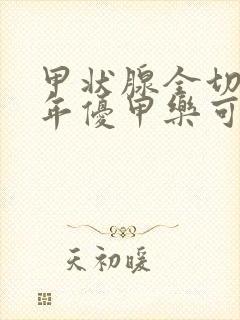 甲状腺全切
年優甲樂可
天初暖